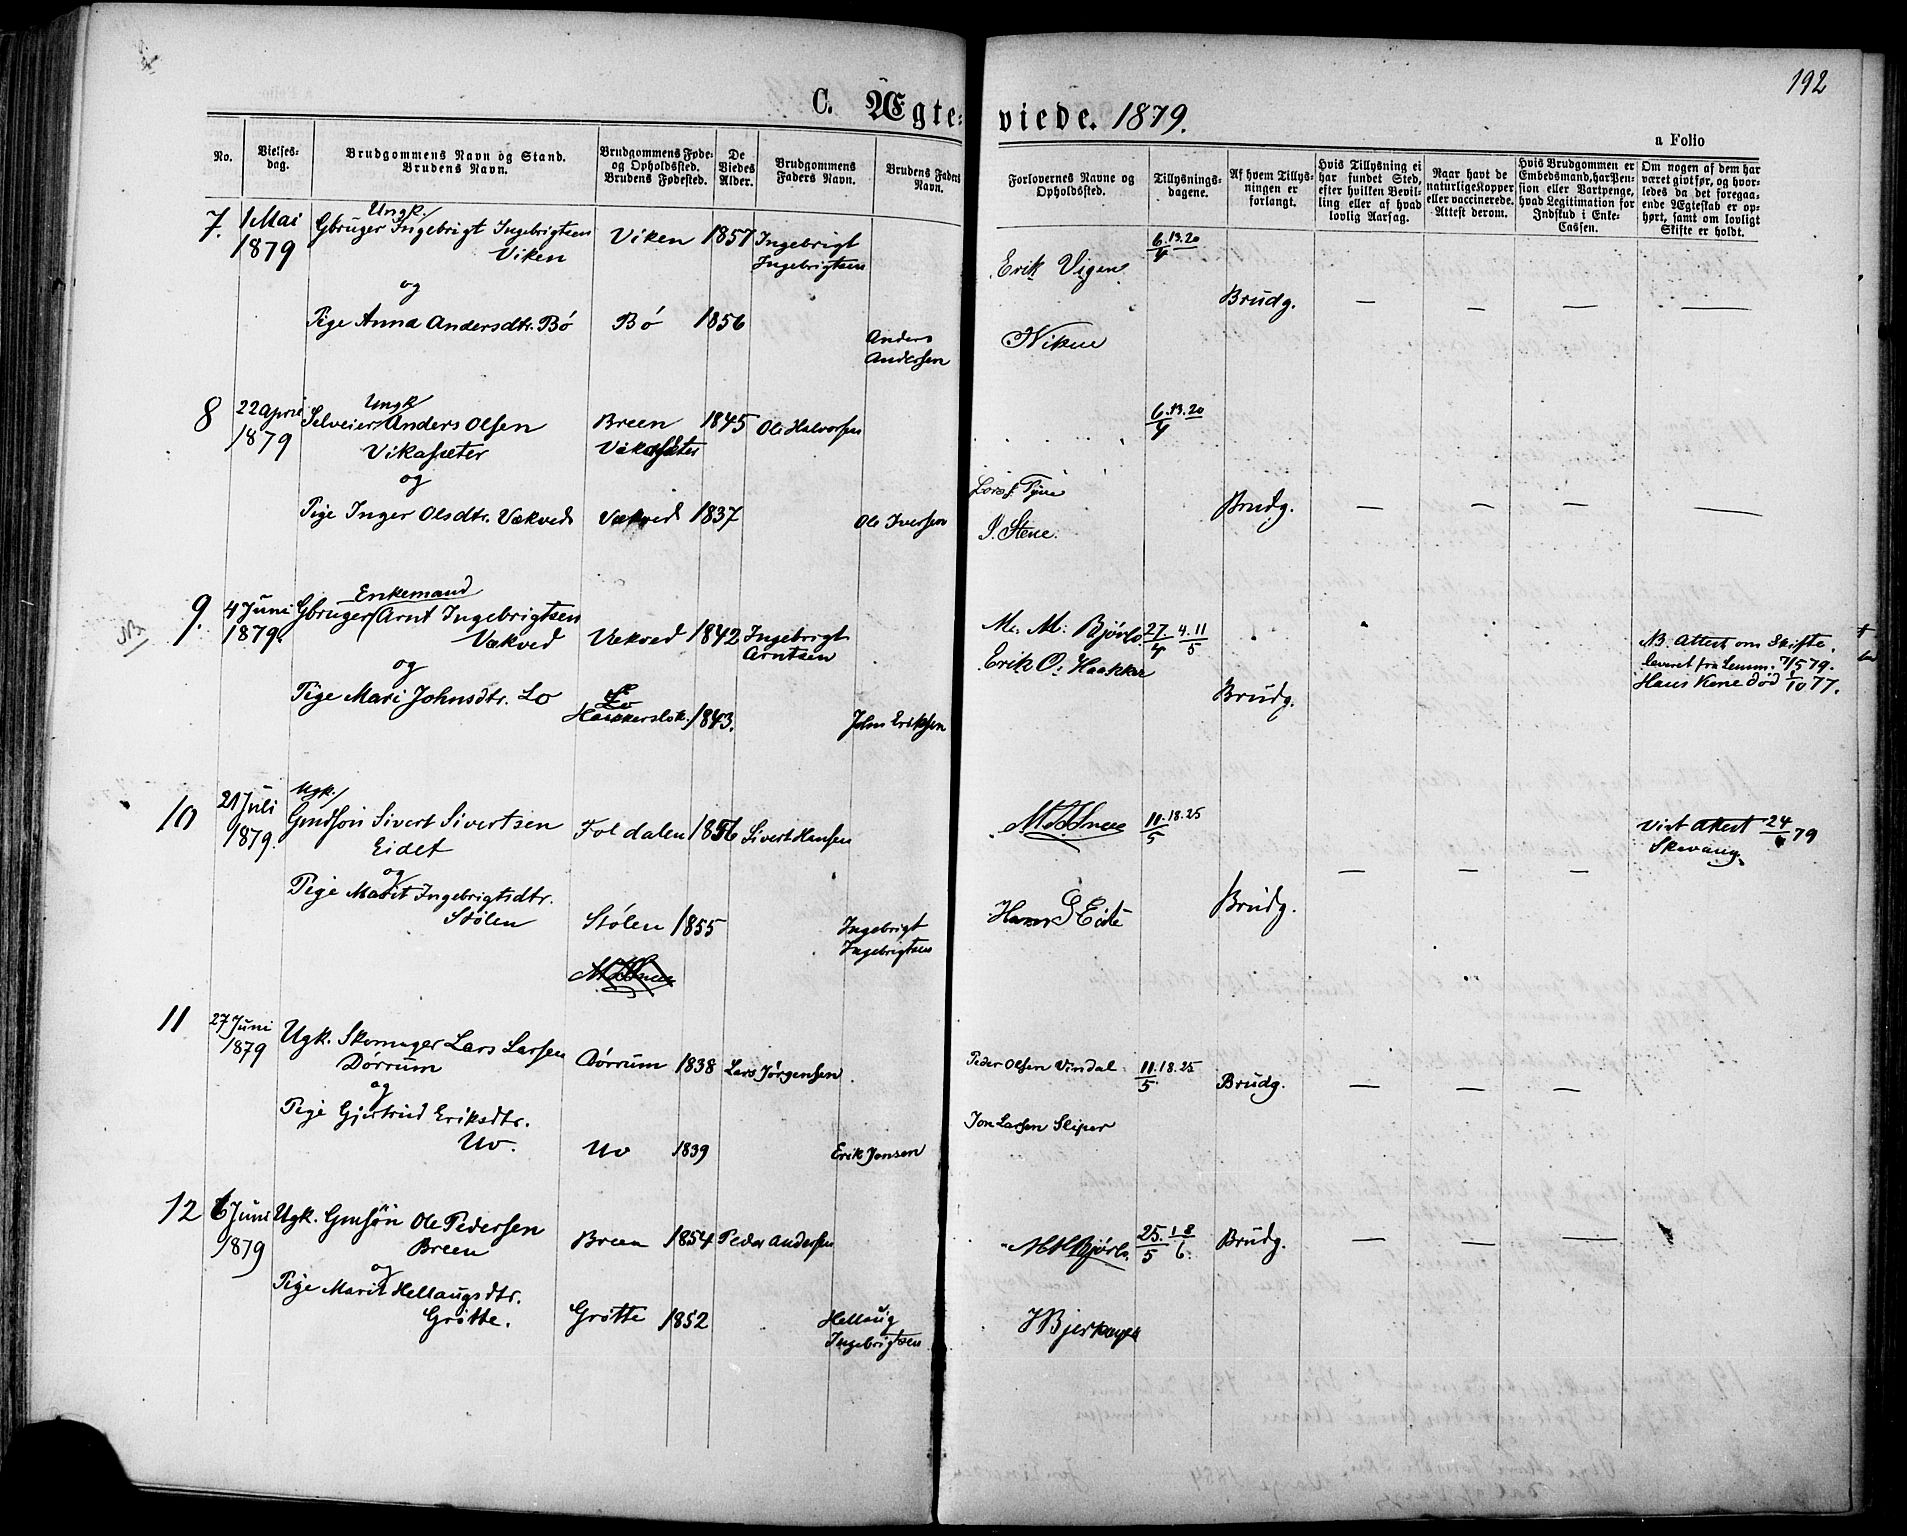 192
C. Ægte-viede. 1879.
a Folio
No.
Vielses-dag.
Brudgommens Navn og Stand.
Brudens Navn.
Brudgommens Føde-
og Opholdssted.
Brudens Fødested.
De
Viedes
Alder.
Brudgommens
Faders Navn.
Brudens Faders
Navn.
Forlovernes Navne og
Opholdssted.
Tillysnings-
dagene.
Af hvem Tillys-
ningen er
forlangt.
Hvis Tillysning ei
har fundet Sted,
efter hvilken Bevil-
ling eller af hvad
lovlig Aarsag.
Naar havt de
naturlige Kopper
eller vaccinerede.
Attest derom.
Hvis Brudgommen er
Embedsmand, har Pen-
sion eller Vartpenge,
hvad Legitimation for
Indskud i Enke-
Cassen.
Om nogen af dem har
været givt før, og hvor-
ledes da det foregaa-
ende Ægteskab er op-
hørt, samt om lovligt
Skifte er holdt.
7. 1 Mai 1879
Ungk.
Gbruger Ingebrigt Ingebrigtsen
Viken
Viken 1857 Ingebrigt
Ingebrigtsen
og
Pige Anna Andersdtr. Bö Bö 1856
Anders
Andersen
Erik Vigen
6. 13. 20
4
Brudg. — — — —
8 22 April 1879
Ungk
Selveier Anders Olsen
Vikasæter
Breen
Vikasæter
1845 Ole Halvorsen
og
Pige Inger Olsdtr. Vækved Vækved 1837 Ole Iversen
6. 13. 20
4
J. Stene.
Brudg. — — — —
NB
9. 4 Juni 1879.
Enkemand
Gbruger Arnt Ingebrigtsen
Vækved
Vækved 1842 Ingebrigt
Arntsen
og
Pige Mari Johnsdtr. Lo
Lo
1843. John Eriksen
M. M. Bjørlo
Erik O. Haakker
27 4. 11
4 5
Brudg.
NB. Attest om Skifte
leveret fra Lensm. 7/5 79.
Hans Kone död 77.
10 21 Juli 1879.
Ugk.
Gmdsön Sivert Sivertsen
Eidet
Foldalen 1856 Sivert Hansen
og
Pige Marit Ingebrigtsdtr.
Stölen
Stölen 1855
Ingebrigt
Ingebrigtsen
11. 18. 25
5
Brudg. — — —
Hans S Eide
Vist Attest 24 79
11 27 Juni 1879
Ugk. Skomager Lars Larsen
Dörrum
Dörrum 1838 Lars Jörgensen
og
Pige Gjertrud Eriksdtr.
Uv.
Uv 1839 Erik Jonsen
Peder Olsen Vindal
11. 18. 25
5
Brudg. — — —
Jon Larsen Sliper
12 6 Juni 1879
Ugk. Gmsön Ole Pedersen
Breen
Breen 1854 Peder Andersen
og
Pige Marit Hellaugsdtr.
Grötte.
Grötte 1852
Hellaug
Ingebrigtsen
M M Bjørlo.
25. 1 8
5 6.
Brudg. — — —